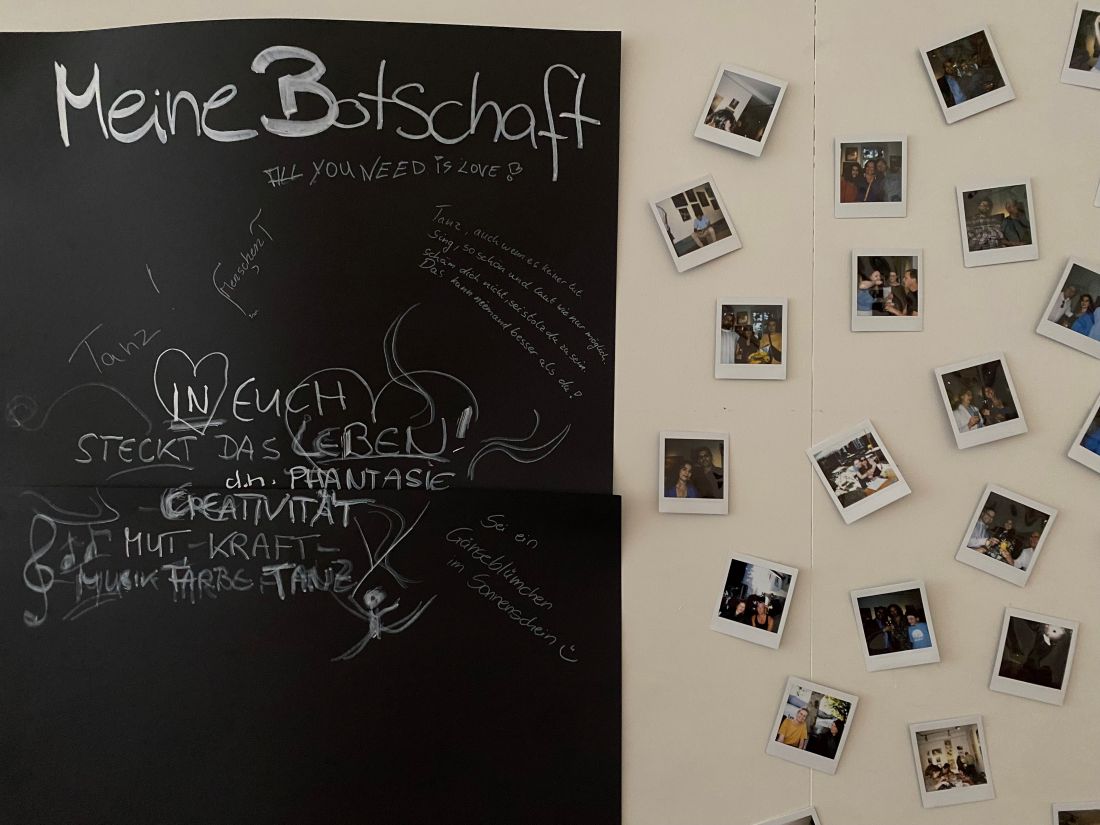 Meine Botschaft
ALL YOU NEED iS LOVE
Tanz, auch wenn es keiner tut
Sing, so schön und laut wie nur möglich.
schäm dich nicht, sei stolz du zu sein.
Das kann niemand besser als du!
Tanz !
IN EUCH
STECKT DAS LEBEN!
d.h. PHANTASIE
CREATIVITÄT
MUT - KRAFT -
MUSIK FARBE TANZ
Sei ein
Gänseblümchen
im Sonnenschein